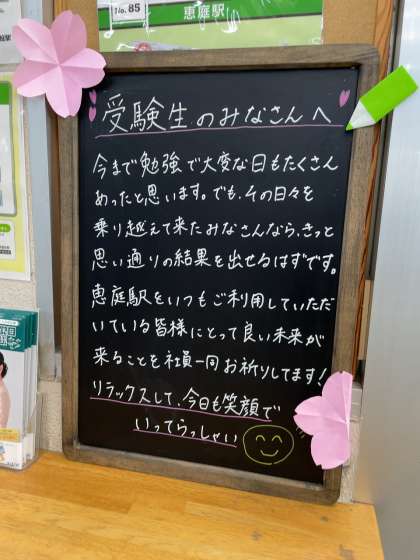 No.85
恵庭駅
受験生のみなさんへ
今まで勉強で大変な日もたくさん
あったと思います。でも、その日々を
乗り越えて来たみなさんなら、きっと
思い通りの結果を出せるはずです。
恵庭駅をいつもご利用していただ
いている皆様にとって良い未来が
来ることを社員一同お祈りしてます!
リラックスして、今日も笑顔で
いってらっしゃい